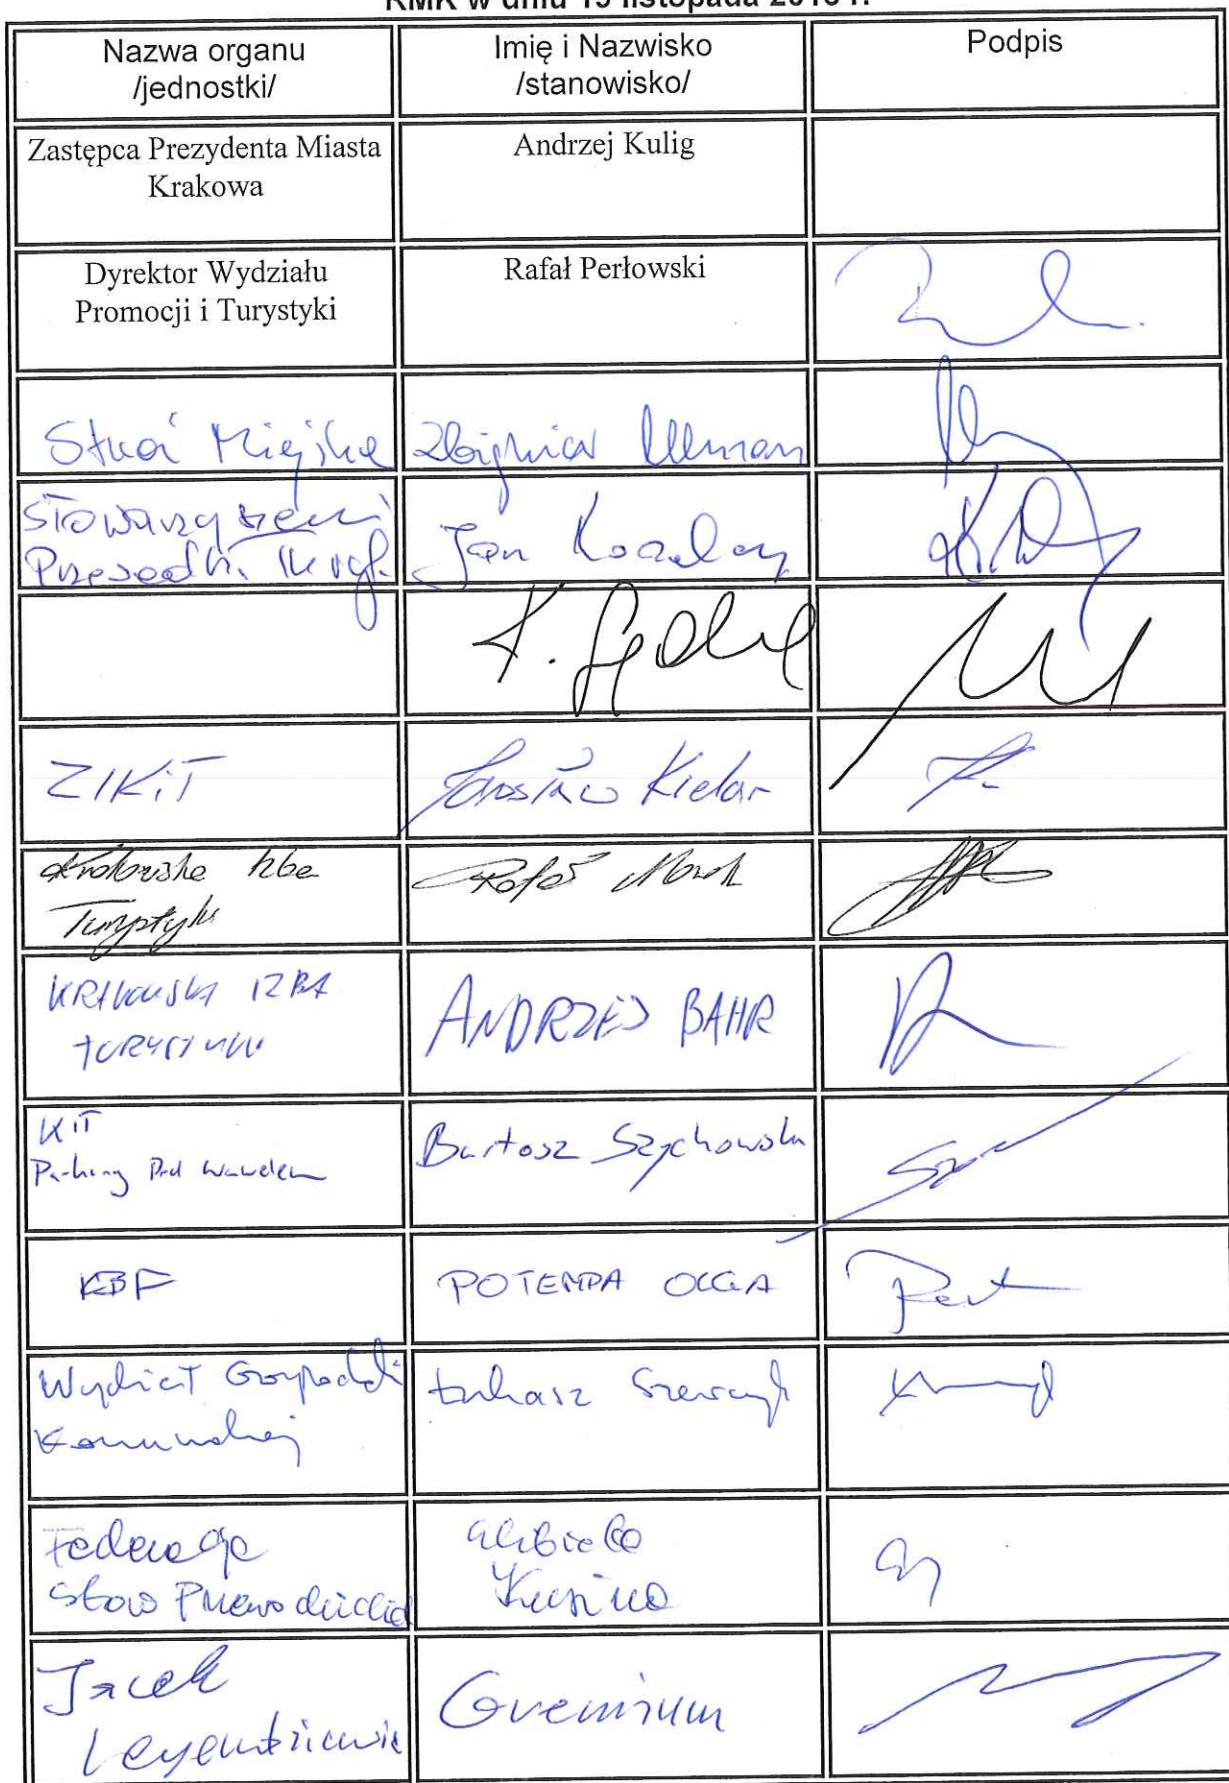 RMK w dniu 15 listopada 2018 r.
Nazwa organu
/jednostki/
Imię i Nazwisko
/stanowisko/
Podpis
Zastępca Prezydenta Miasta
Krakowa
Andrzej Kulig
Dyrektor Wydziału
Promocji i Turystyki
Rafał Perłowski
Straż Miejska
Zbigniew Ullman
Jan
K.
ZIKiT
Jarosław Kielar
Krakowska Izba
Turystyki
Rafał Marek
KRAKOWSKA IZBA
TURYSTYKI
ANDRZEJ BAHR
KIT
Parking Pod Wawelem
Bartosz Szychowski
KBF
POTEMPA OLGA
Wydział Gospodarki
Komunalnej
Łukasz Szewczyk
Federacja
Stow Przewodnickich
Elżbieta
Kusina
Jacek
Legendziewicz
Gremium